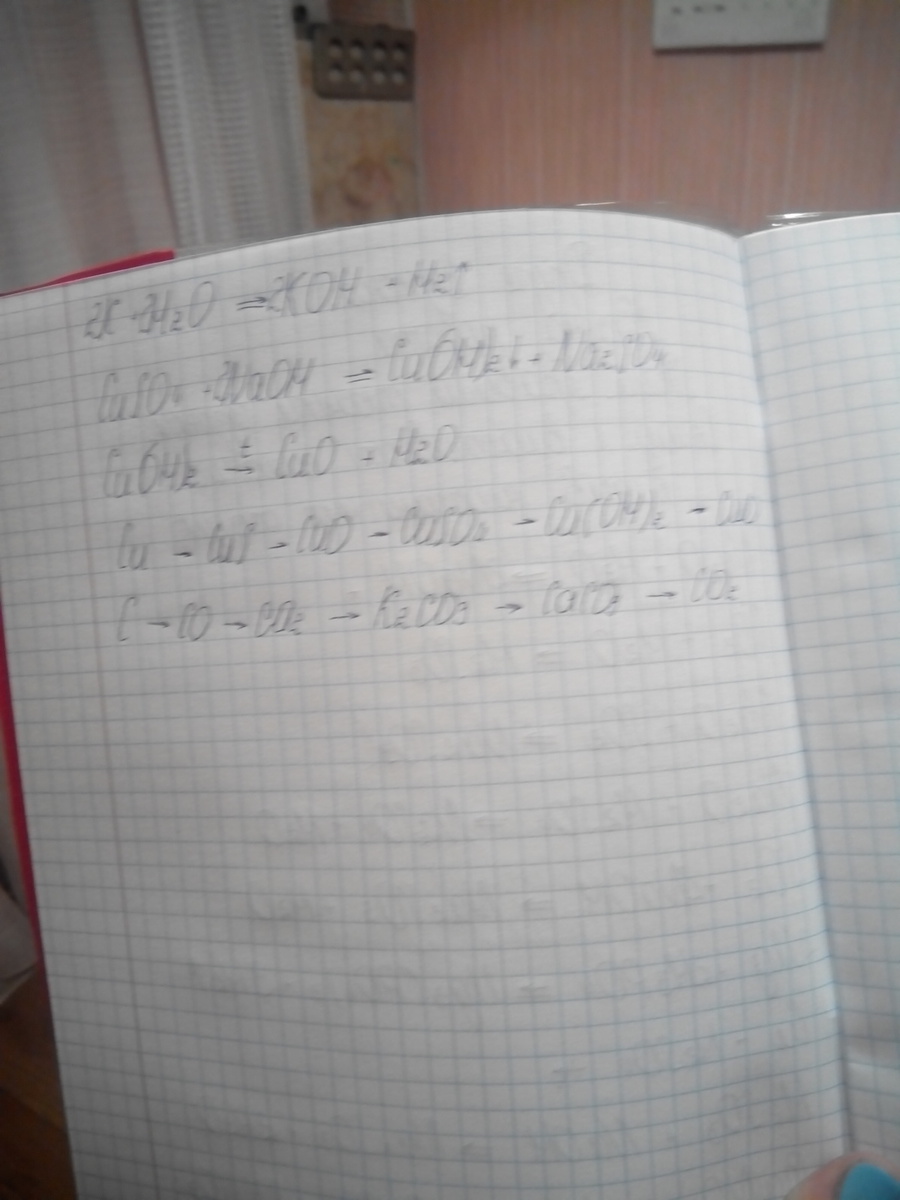 2K + 2H₂O = 2KOH + H₂↑
CuSO₄ + 2NaOH = Cu(OH)₂↓ + Na₂SO₄
Cu(OH)₂ t→ CuO + H₂O
Cu → CuS → CuO → CuSO₄ → Cu(OH)₂ → CuO
C → CO → CO₂ → K₂CO₃ → CaCO₃ → CO₂